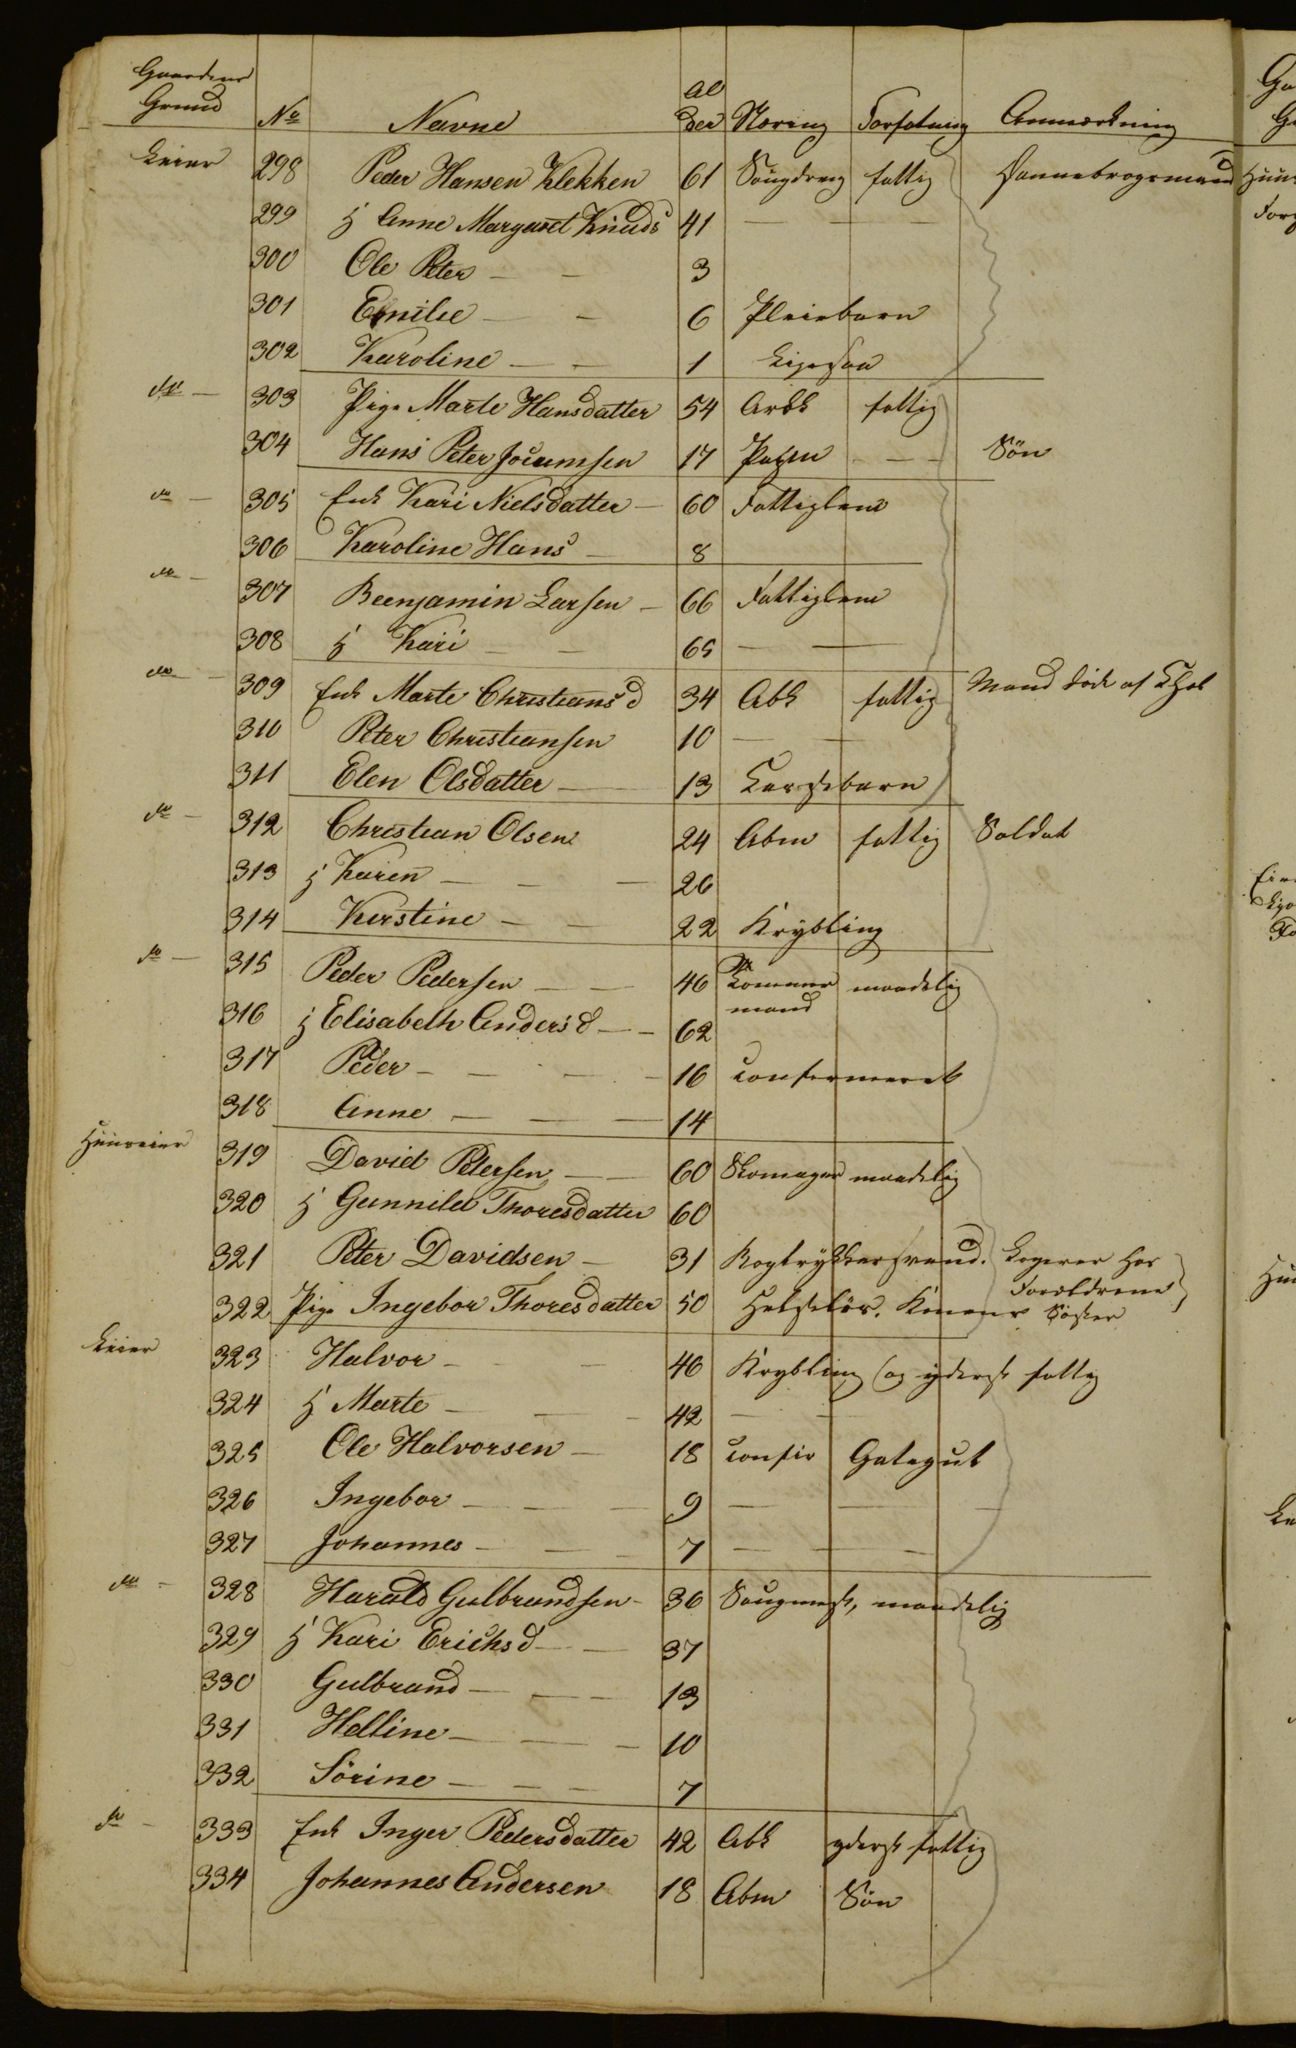 Gaardens
Grund No Navne Alder Næring Forfatning Anmærkning
Leier 298 Peder Hansen Klekken 61 Saugdreng fattig Dannebrogsmand
299 H Anne Margaret Knuds 41 — —
300 Ole Peter — — 3
301 Emilie — — 6 Pleiebarn
302 Karoline — — 1 Ligesaa
do — 303 Pige Marte Hansdatter 54 Arbk fattig
304 Hans Peter Jocumsen 17 — — Søn
do — 305 Enk Kari Nielsdatter — 60 Fattiglem
306 Karoline Hans — 8
do — 307 Beenjamin Larsen — 66 Fattiglem
308 H Kari — — 65 — —
do — 309 Enk Marte Christians d 34 Abk fattig Mand døde af
310 Peter Christiansen 10 — —
311 Elen Olsdatter — 13 barn
do — 312 Christian Olsen 24 Abm fattig Soldat
313 H Karen — — — 26
314 Kerstine — — 22 Krybling
do — 315 Peder Pedersen — — 46 mand maadelig
316 H Elisabeth Anders d — — 62
317 Peder — — — — 16 confirmeret
318 Anne — — — 14
Huuseier 319 David Petersen — — 60 Skomager maadelig
320 H Gunnild Thoresdatter 60
321 Peter Davidsen — 31 Bogtrykkersvend. Logerer hos
Forældrene
322 Pige Ingebor Thoresdatter 50 Helseløs. Konens Søster
Leier 323 Halvor — — 46 Krybling og yderst fattig
324 H Marte — — — 42 — —
325 Ole Halvorsen — 18 confir Gategut
326 Ingebor — — — 9 — — —
327 Johannes — — — 7 — — —
do — 328 Harald Gulbrandsen — 36 Saugmest, maadelig
329 H Kari Erichs d — — 37
330 Gulbrand — — — 13
331 Helline — — — 10
332 Sörine — — — 7
do — 333 Enk Inger Pedersdatter 42 Abk yderst fattig
334 Johannes Andersen 18 Abm Søn